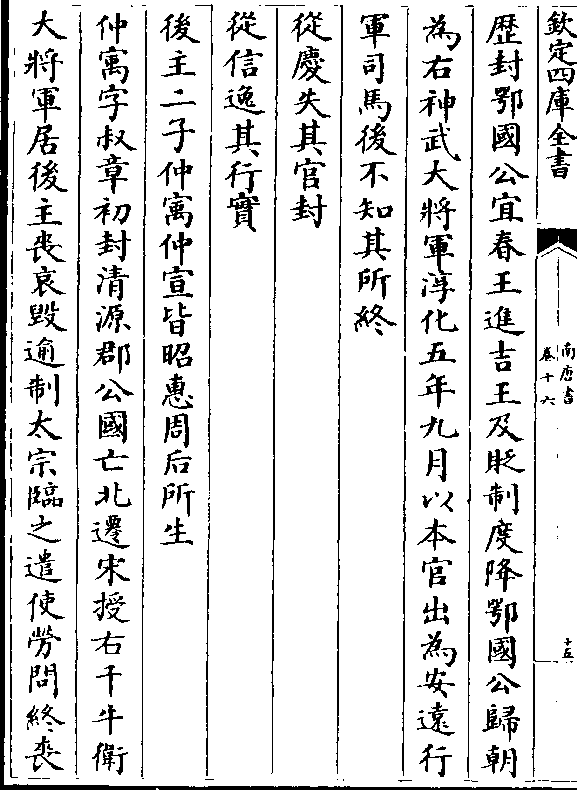 欽定四庫全書
南唐書
卷十六
十五
歴封鄂國公宜春王進吉王及貶制度降鄂國公歸朝
為右神武大將軍淳化五年九月以本官出為安遠行
軍司馬後不知其所終
從慶失其官封
從信逸其行實
後主二子仲寓仲宣皆昭惠周后所生
仲寓字叔章初封清源郡公國亡北遷宋授右千牛衛
大將軍居後主喪哀毀逾制太宗臨之遣使勞問終喪